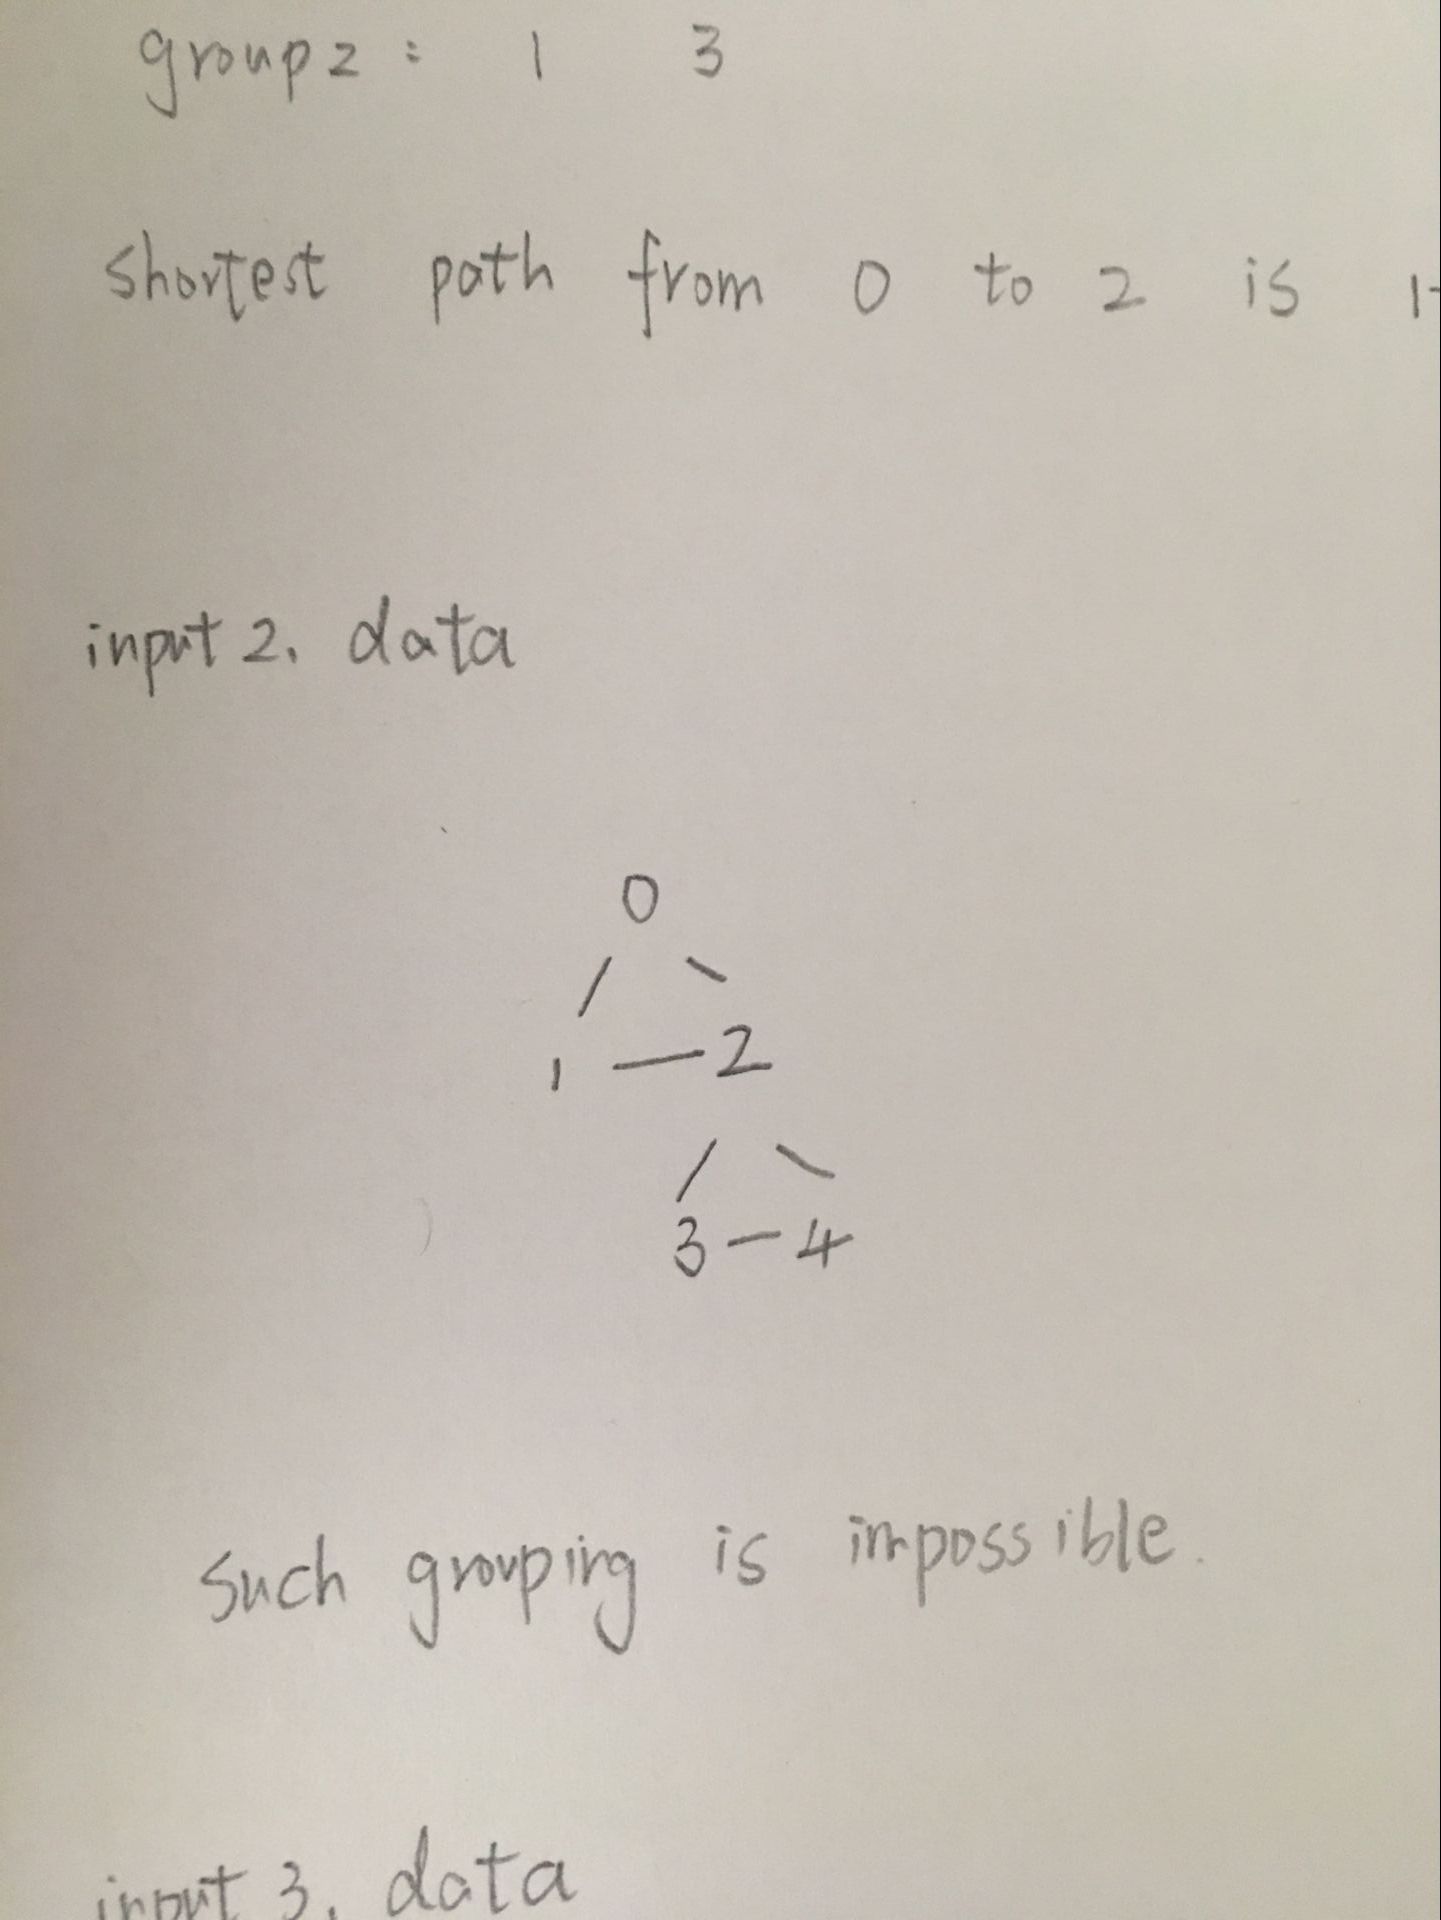 group2 : 1 3
shortest path from 0 to 2 is 1-
input 2. data
0
/ \
1 — 2
/ \
3 — 4
Such grouping is impossible.
input 3. data